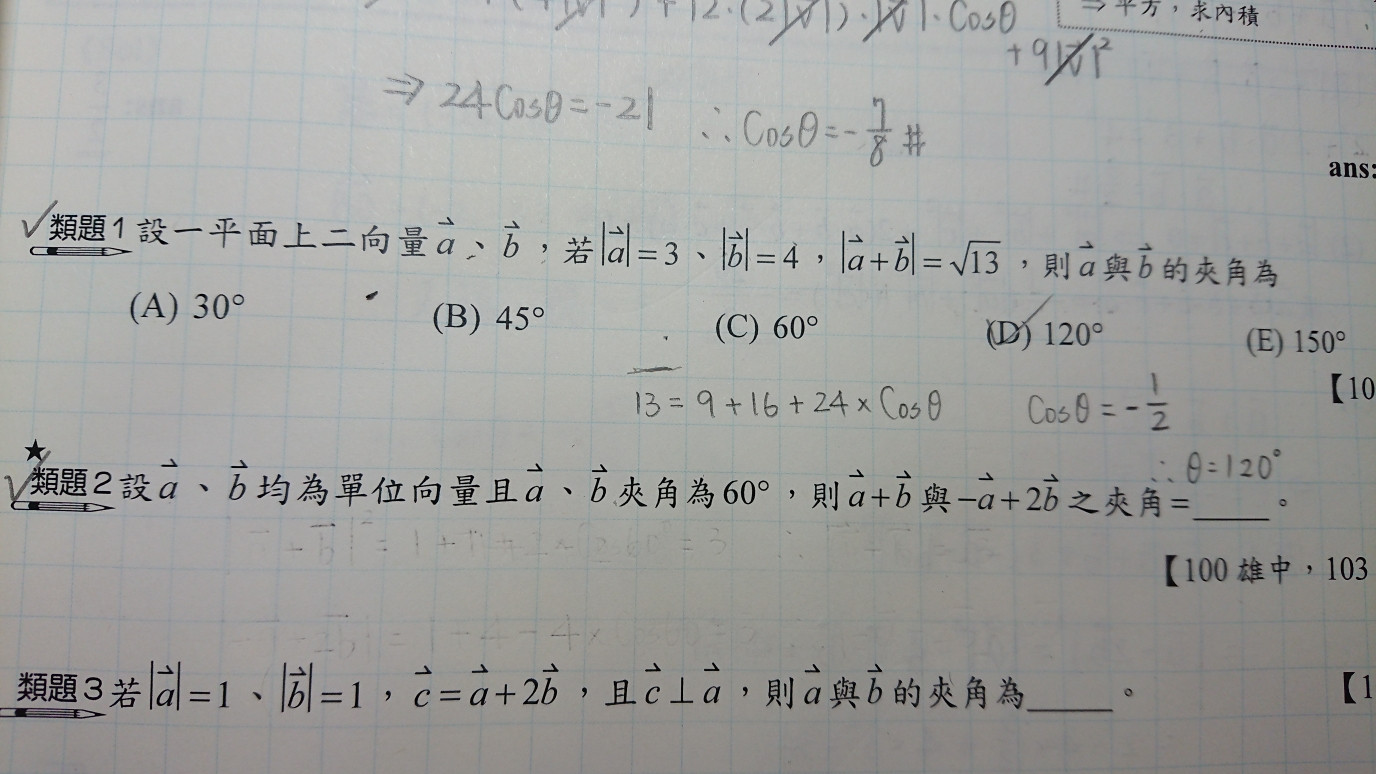 ⇒ 平方，求內積
12·(2|v|)·|v|·Cosθ
+9|v|²
⇒ 24Cosθ=-21 ∴Cosθ=-7/8 #
ans:
✓類題1 設一平面上二向量a⃗、b⃗，若|a⃗|=3、|b⃗|=4，|a⃗+b⃗|=√13，則a⃗與b⃗的夾角為
(A) 30° (B) 45° (C) 60° (D) 120° (E) 150°
【10
13=9+16+24×Cosθ Cosθ=-1/2
∴θ=120°
★
✓類題2 設a⃗、b⃗均為單位向量且a⃗、b⃗夾角為60°，則a⃗+b⃗與-a⃗+2b⃗之夾角=____。
【100 雄中，103
類題3 若|a⃗|=1、|b⃗|=1，c⃗=a⃗+2b⃗，且c⃗⊥a⃗，則a⃗與b⃗的夾角為____。
【1